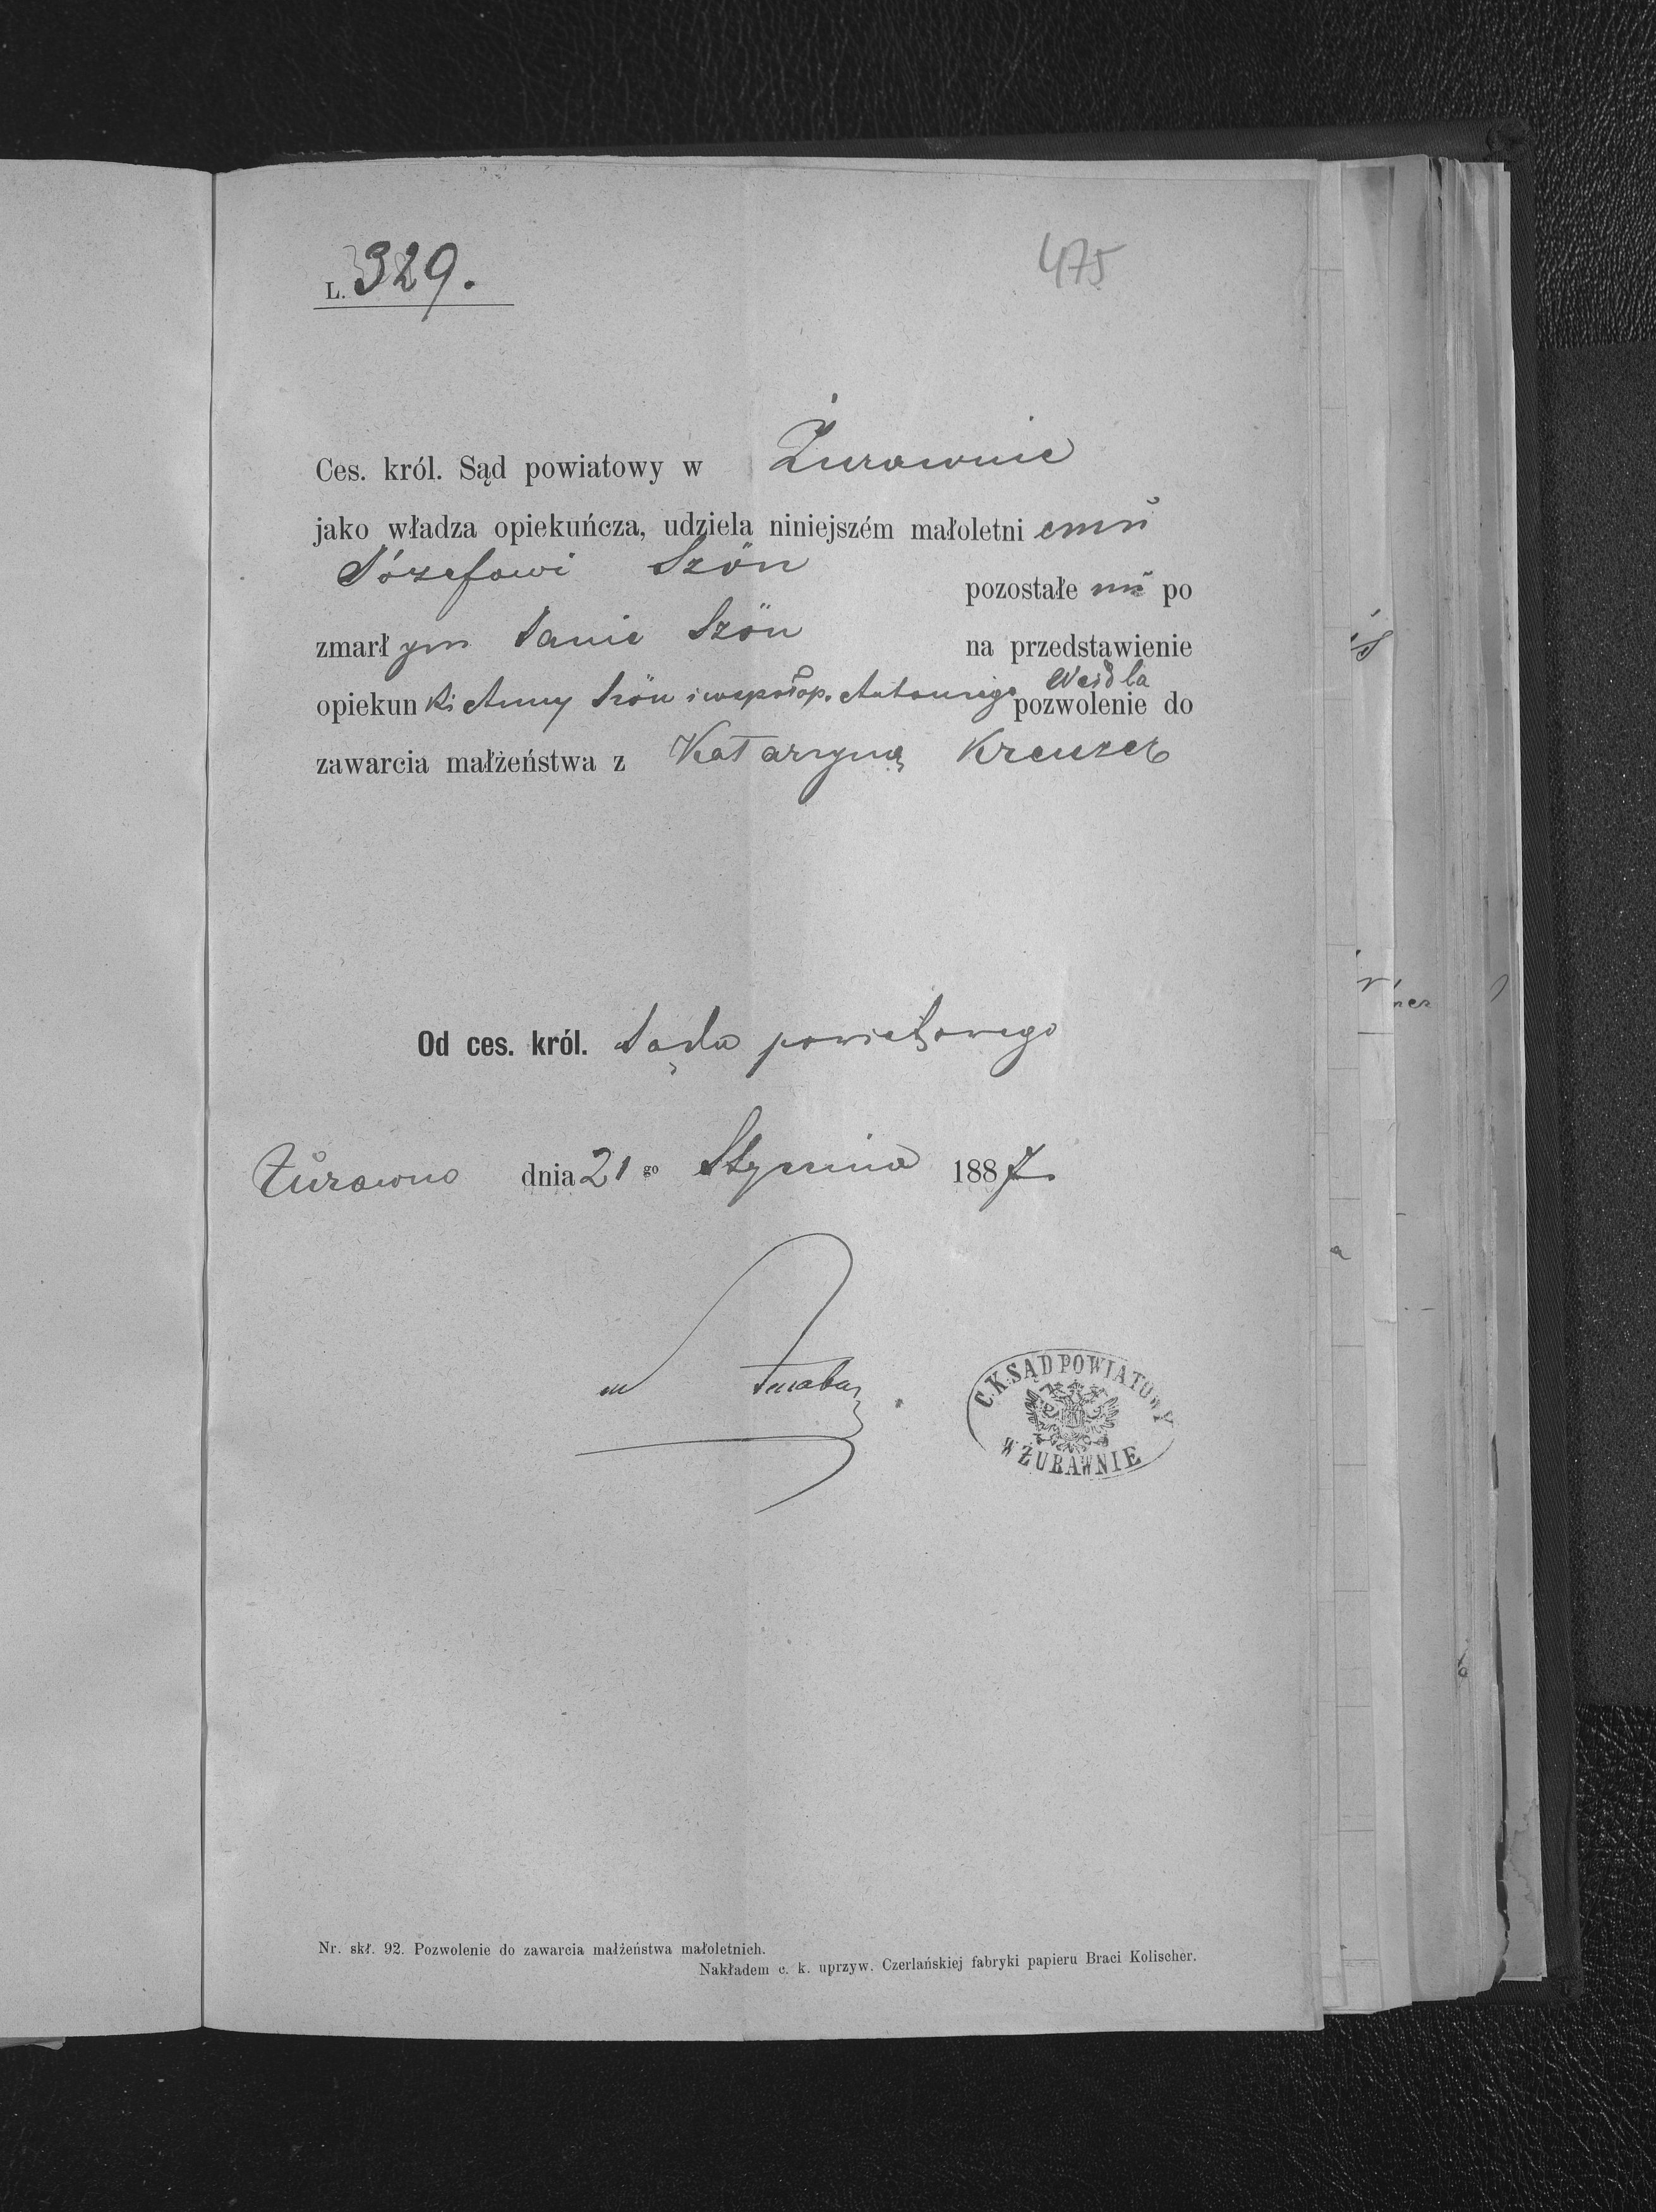 L. 329.
475
Ces. król. Sąd powiatowy w Żurawnie
jako władza opiekuńcza, udziela niniejszém małoletni emu
Józefowi Szön
pozostałe mu po
zmarł ym Janie Szön na przedstawienie
opiekun ki Anny Szön i współop. Antoniego Weidla pozwolenie do
zawarcia małżeństwa z Katarzyną Kreuzer
Od ces. król. Sądu powiatowego
Żurawno dnia 21 go Stycznia 1887.
C.K. SĄD POWIATOWY
W ŻURAWNIE
Nr. skł. 92. Pozwolenie do zawarcia małżeństwa małoletnich.
Nakładem c. k. uprzyw. Czerlańskiej fabryki papieru Braci Kolischer.